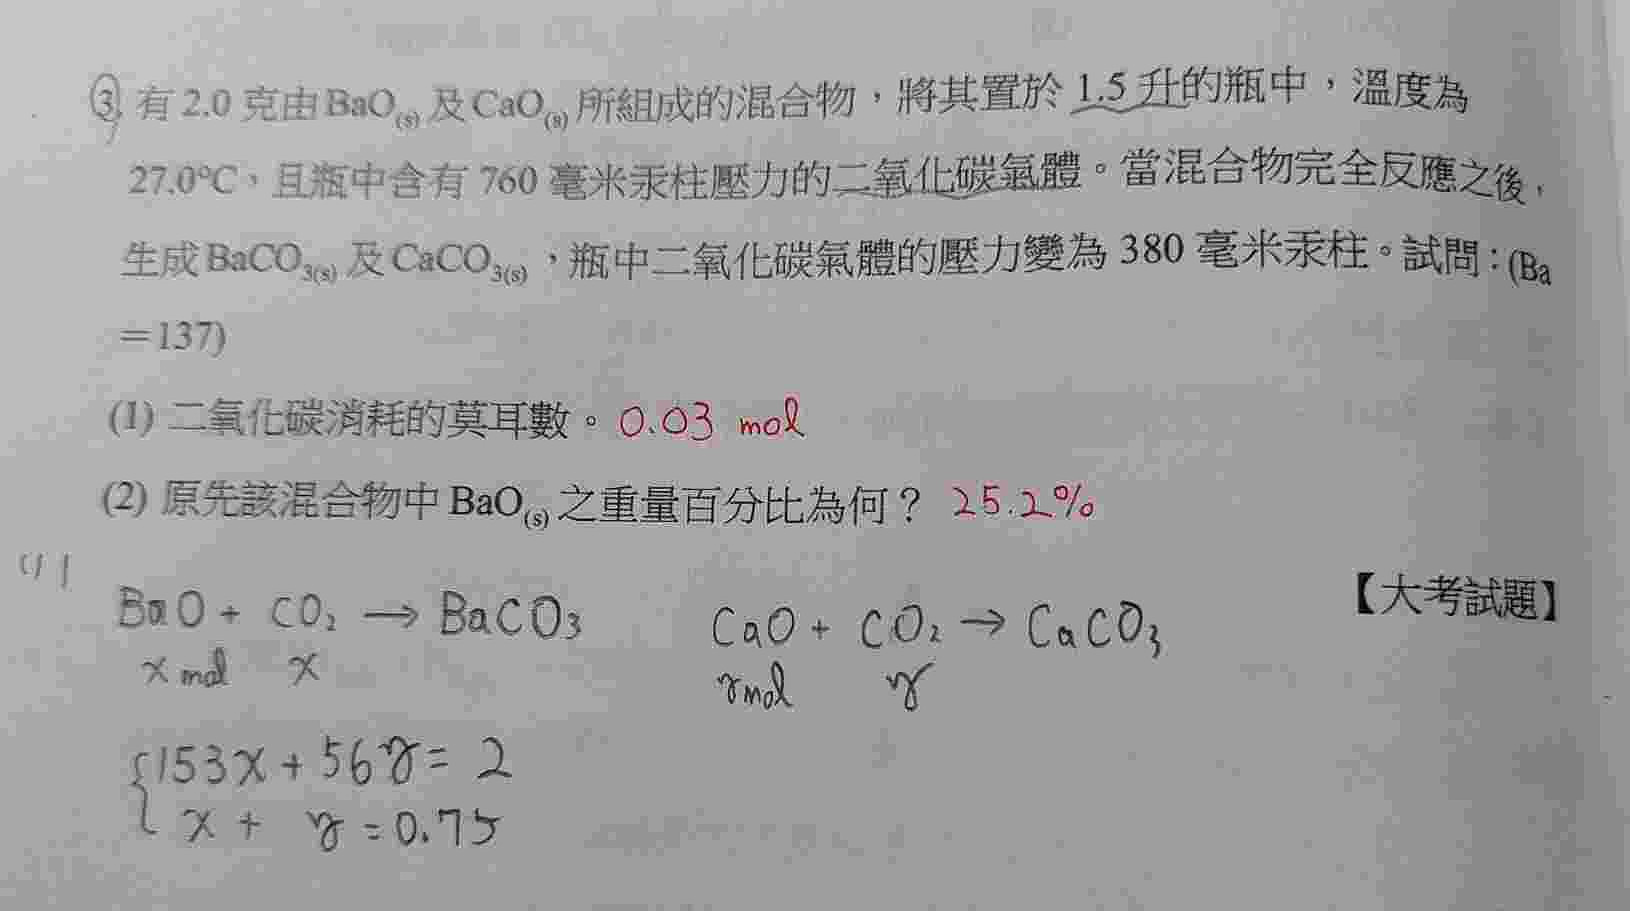 ③ 有 2.0 克由 BaO(s) 及 CaO(s) 所組成的混合物，將其置於 1.5 升的瓶中，溫度為
27.0°C，且瓶中含有 760 毫米汞柱壓力的二氧化碳氣體。當混合物完全反應之後，
生成 BaCO3(s) 及 CaCO3(s)，瓶中二氧化碳氣體的壓力變為 380 毫米汞柱。試問：(Ba
＝137)
(1) 二氧化碳消耗的莫耳數。 0.03 mol
(2) 原先該混合物中 BaO(s) 之重量百分比為何？ 25.2%
【大考試題】
(1)
BaO + CO2 → BaCO3 CaO + CO2 → CaCO3
x mol x y mol y
{153x + 56y = 2
x + y = 0.75